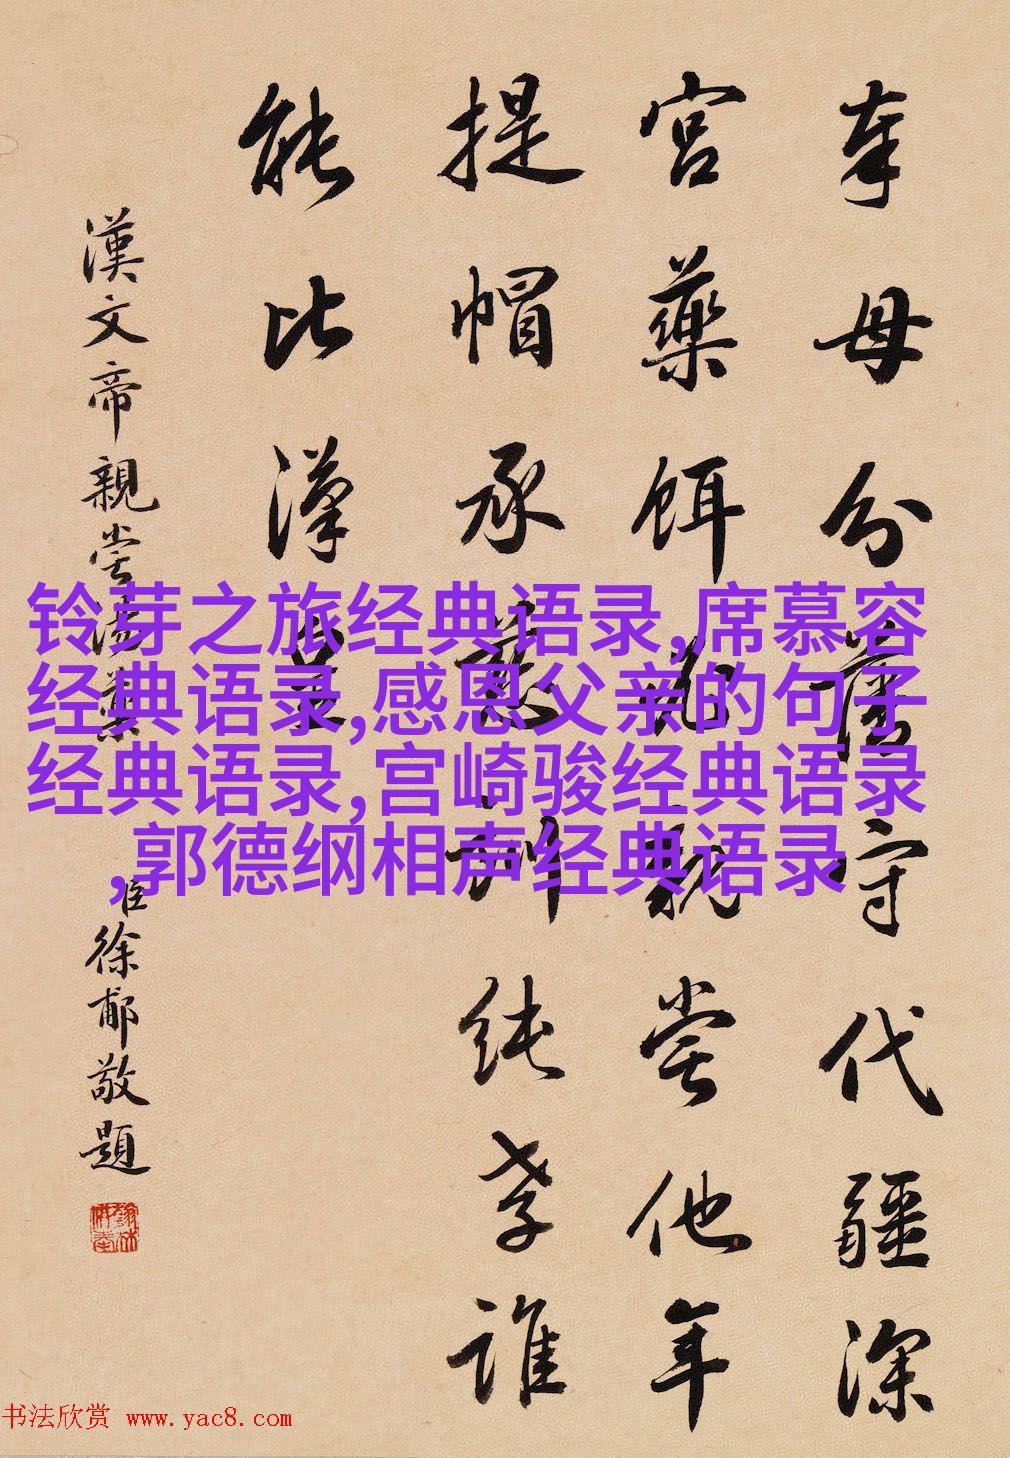 奉母分藩守代疆深
宮藥餌親嘗他年
提帽承慈訓純孝誰
能比漢皇
漢文帝親嘗湯藥
臣徐郙敬題
铃芽之旅经典语录,席慕容
经典语录,感恩父亲的句子
经典语录,宫崎骏经典语录
,郭德纲相声经典语录
书法欣赏 www.yac8.com